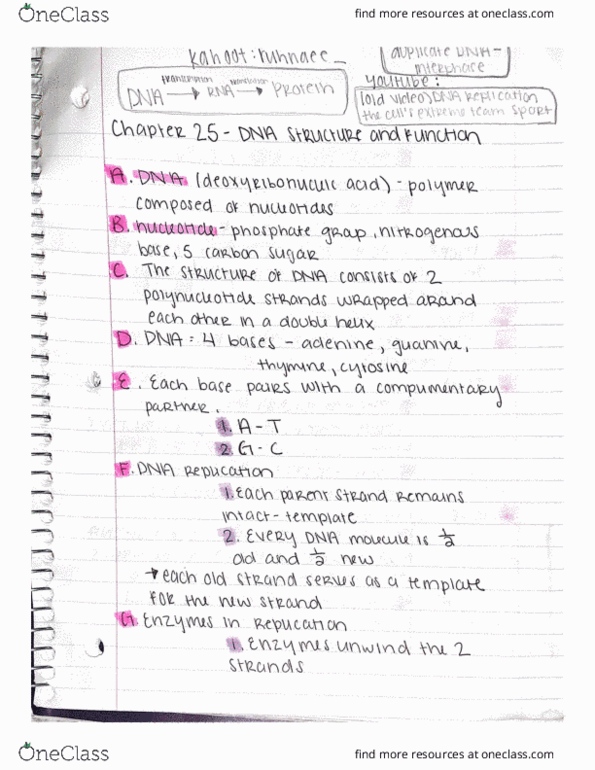 OneClass
find more resources at oneclass.com
kahoot:ruhnaee_
duplicate DNA-
interphase
transcription translation
DNA → RNA → Protein
youtube:
(old video) DNA Replication
the cell's extreme team sport
Chapter 25 - DNA Structure and Function
A. DNA (deoxyribonucleic acid) - polymer
composed of nucleotides
B. nucleotide - phosphate group, nitrogenous
base, 5 carbon sugar
C. The structure of DNA consists of 2
polynucleotide strands wrapped around
each other in a double helix
D. DNA: 4 bases - adenine, guanine,
thymine, cytosine
E. Each base pairs with a complimentary
partner.
1. A-T
2. G-C
F. DNA Replication
1. Each parent strand remains
intact - template
2. Every DNA molecule is 1/2
old and 1/2 new
→ each old strand serves as a template
for the new strand
G. Enzymes in Replication
1. Enzymes unwind the 2
strands
OneClass
find more resources at oneclass.com